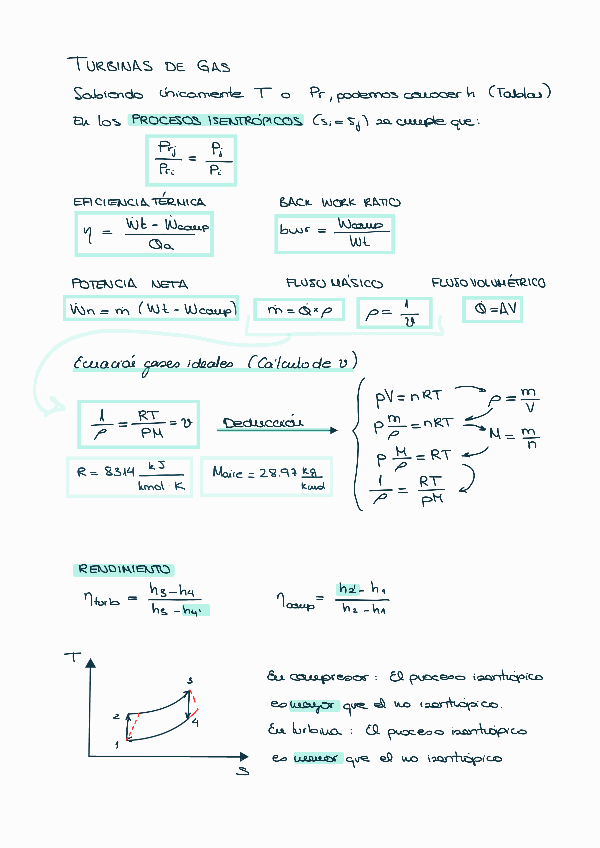 TURBINAS DE GAS
Sabiendo únicamente T o Pr, podemos conocer h (Tablas)
En los PROCESOS ISENTRÓPICOS (si = sj) se cumple que:
Prj / Pri = Pj / Pi
EFICIENCIA TÉRMICA BACK WORK RATIO
η = (Ẇt - Ẇcomp) / Qa bwr = Wcomp / Wt
POTENCIA NETA FLUJO MÁSICO FLUJO VOLUMÉTRICO
Ẇn = ṁ (Wt - Wcomp) ṁ = Q̇ * ρ ρ = 1 / v Q̇ = AV
Ecuación gases ideales (Cálculo de v)
1 / ρ = RT / PM = v Deducción
pV = nRT ρ = m / V
p m / ρ = nRT M = m / n
p M / ρ = RT
1 / ρ = RT / pM
R = 8314 kJ / kmol · K Maire = 28.97 kg / kmol
RENDIMIENTO
ηturb = (h3 - h4) / (h3 - h4') ηcomp = (h2' - h1) / (h2 - h1)
T
3
2
4
1
S
En compresor: El proceso isentrópico
es mayor que el no isentrópico.
En turbina: El proceso isentrópico
es menor que el no isentrópico